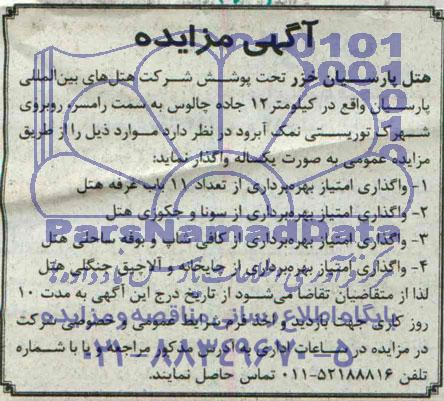 آگهی مزایده
هتل پارسیان خزر تحت پوشش شرکت هتل‌های بین‌المللی
پارسیان واقع در کیلومتر ۱۲ جاده چالوس به سمت رامسر، روبروی
شهرک توریستی نمک آبرود در نظر دارد موارد ذیل را از طریق
مزایده عمومی به صورت یکساله واگذار نماید:
۱- واگذاری امتیاز بهره‌برداری از تعداد ۱۱ باب غرفه هتل
۲- واگذاری امتیاز بهره‌برداری از سونا و جکوزی هتل
۳- واگذاری امتیاز بهره‌برداری از کافی شاپ و بوفه ساحلی هتل
۴- واگذاری امتیاز بهره‌برداری از چایخانه و آلاچیق جنگلی هتل
لذا از متقاضیان تقاضا می‌شود از تاریخ درج این آگهی به مدت ۱۰
روز کاری جهت بازدید و اخذ فرم شرایط عمومی و خصوصی شرکت
در مزایده در ساعات اداری به آدرس مذکور مراجعه و یا با شماره
تلفن ۵۲۱۸۸۸۱۶-۰۱۱ تماس حاصل نمایند.
ParsNamadData
پایگاه اطلاع رسانی مناقصه و مزایده
۰۲۱-۸۸۳۴۹۶۷۰-۵